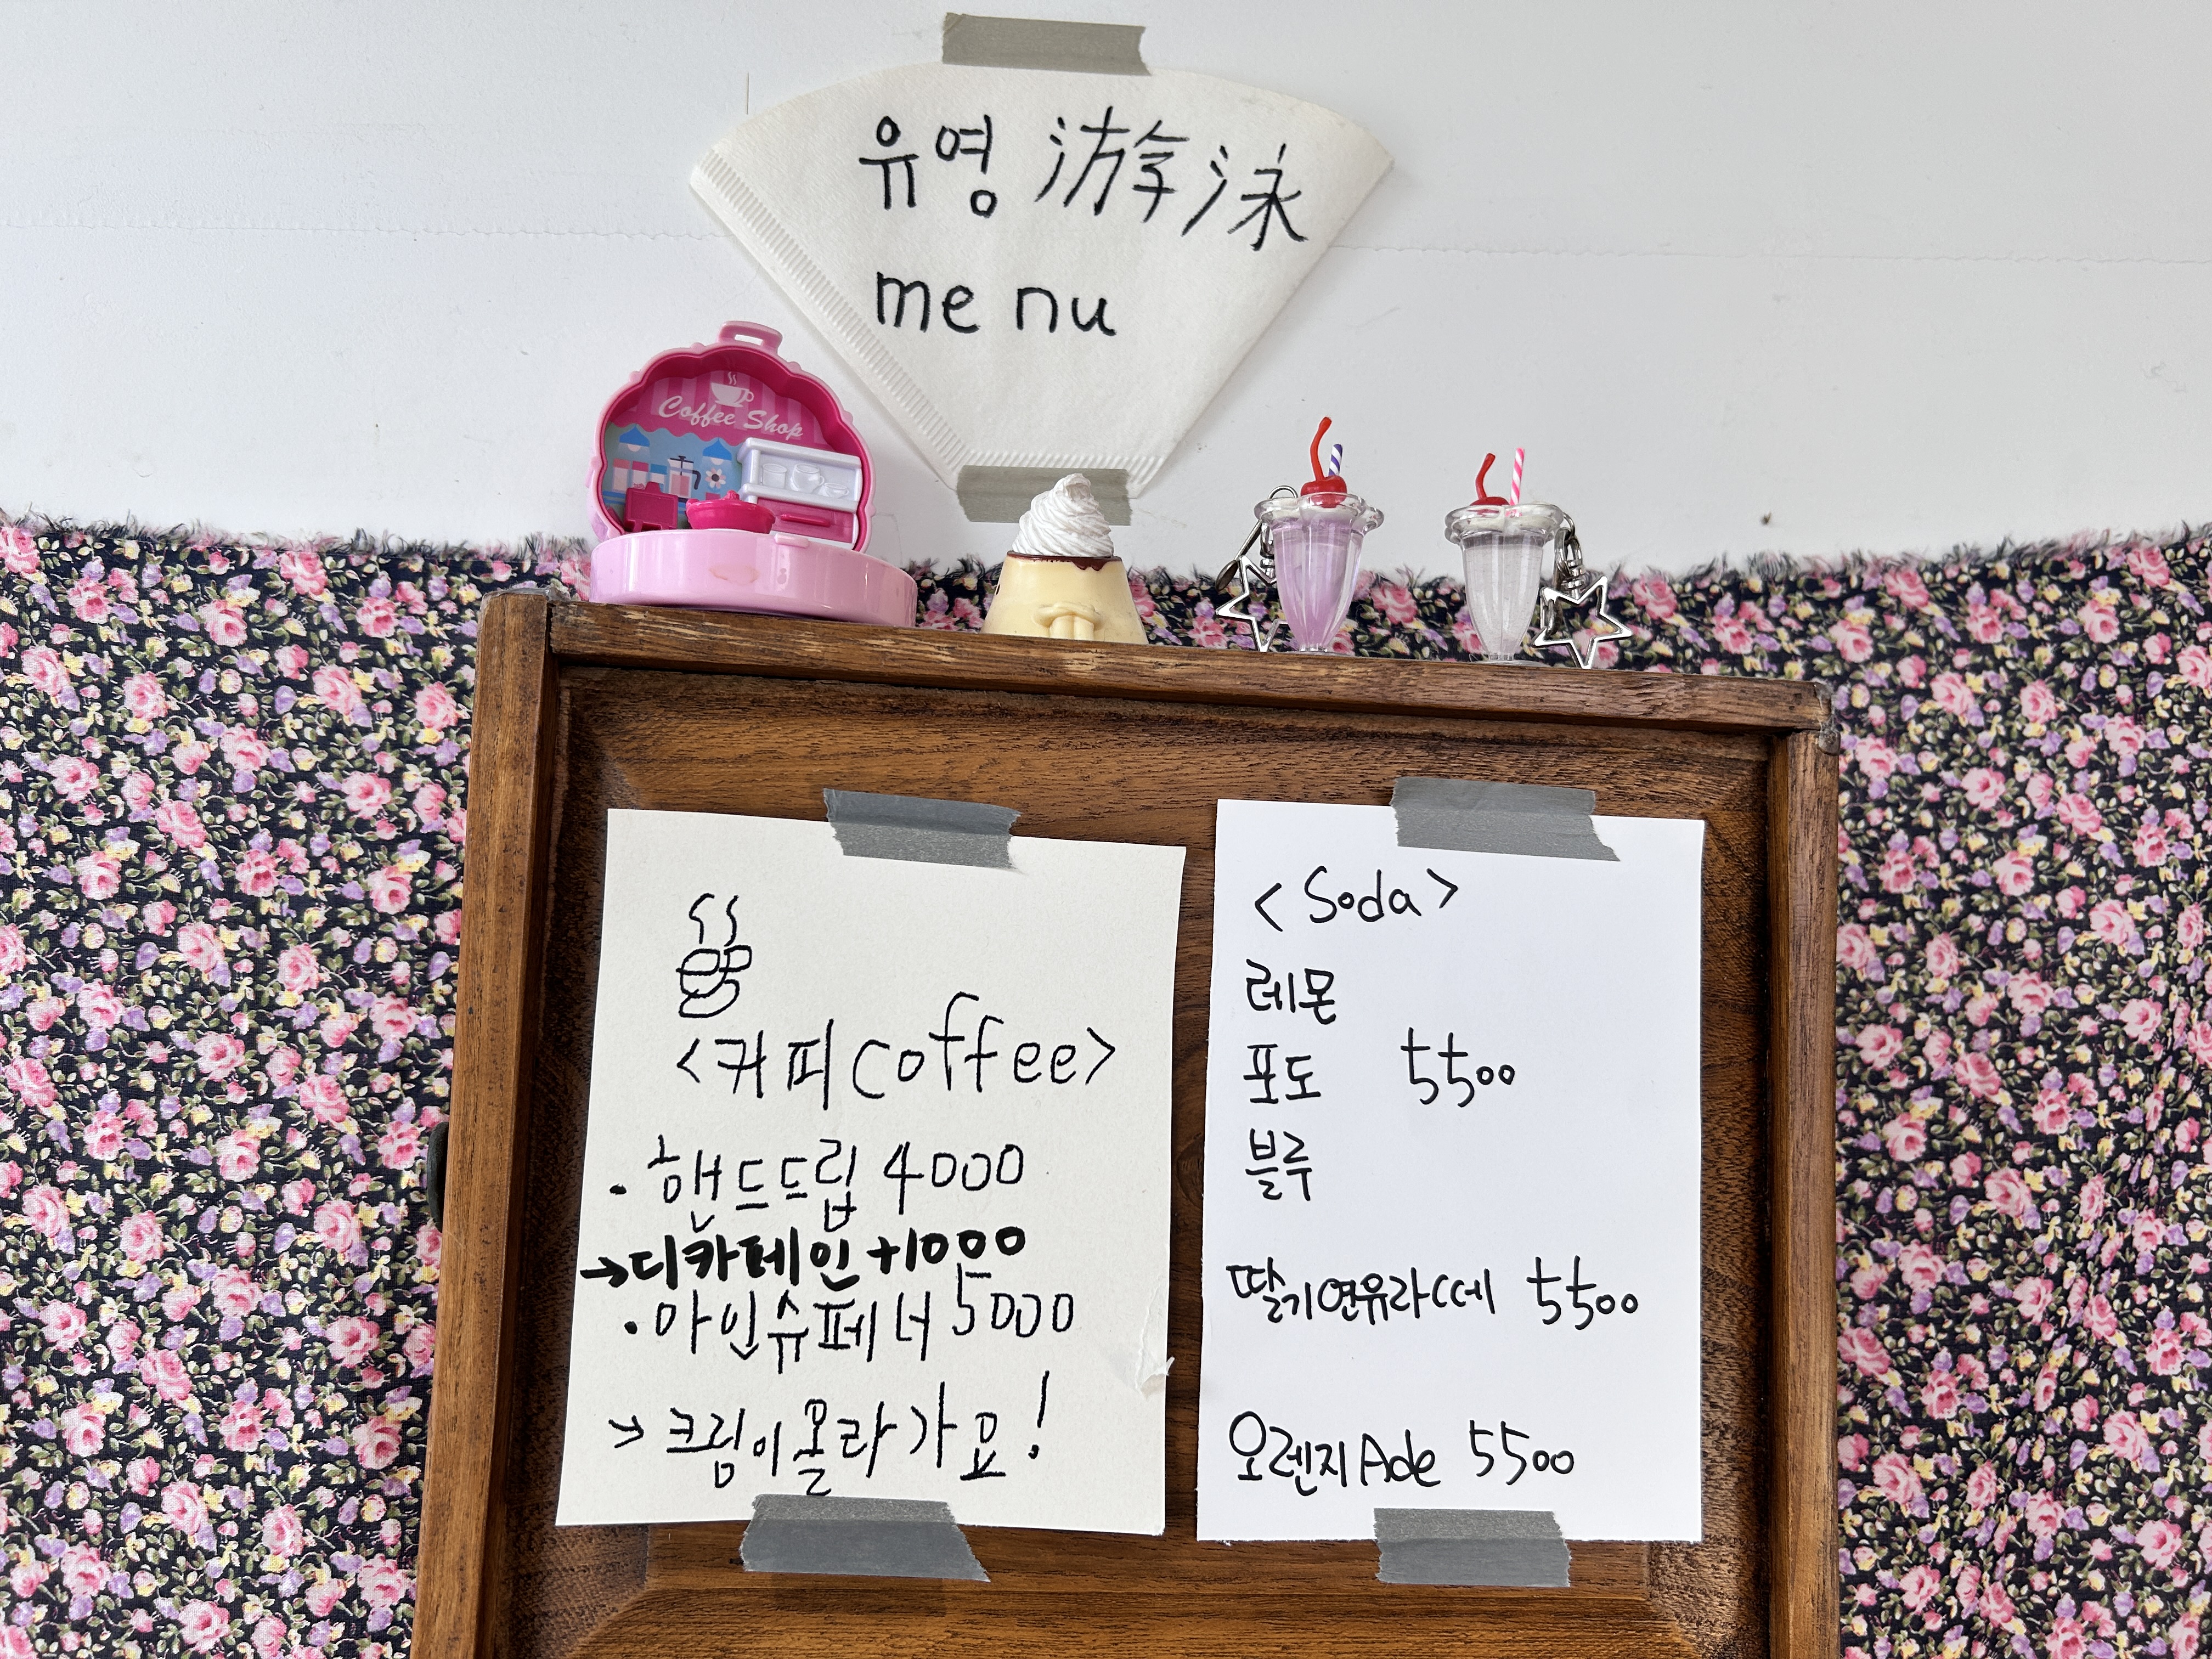 유영 游泳
menu
Coffee Shop
<커피 coffee>
· 핸드드립 4000
→디카페인 +1000
· 아인슈페너 5000
→ 크림이 올라가요!
<Soda>
레몬
포도 5500
블루
딸기연유라떼 5500
오렌지Ade 5500